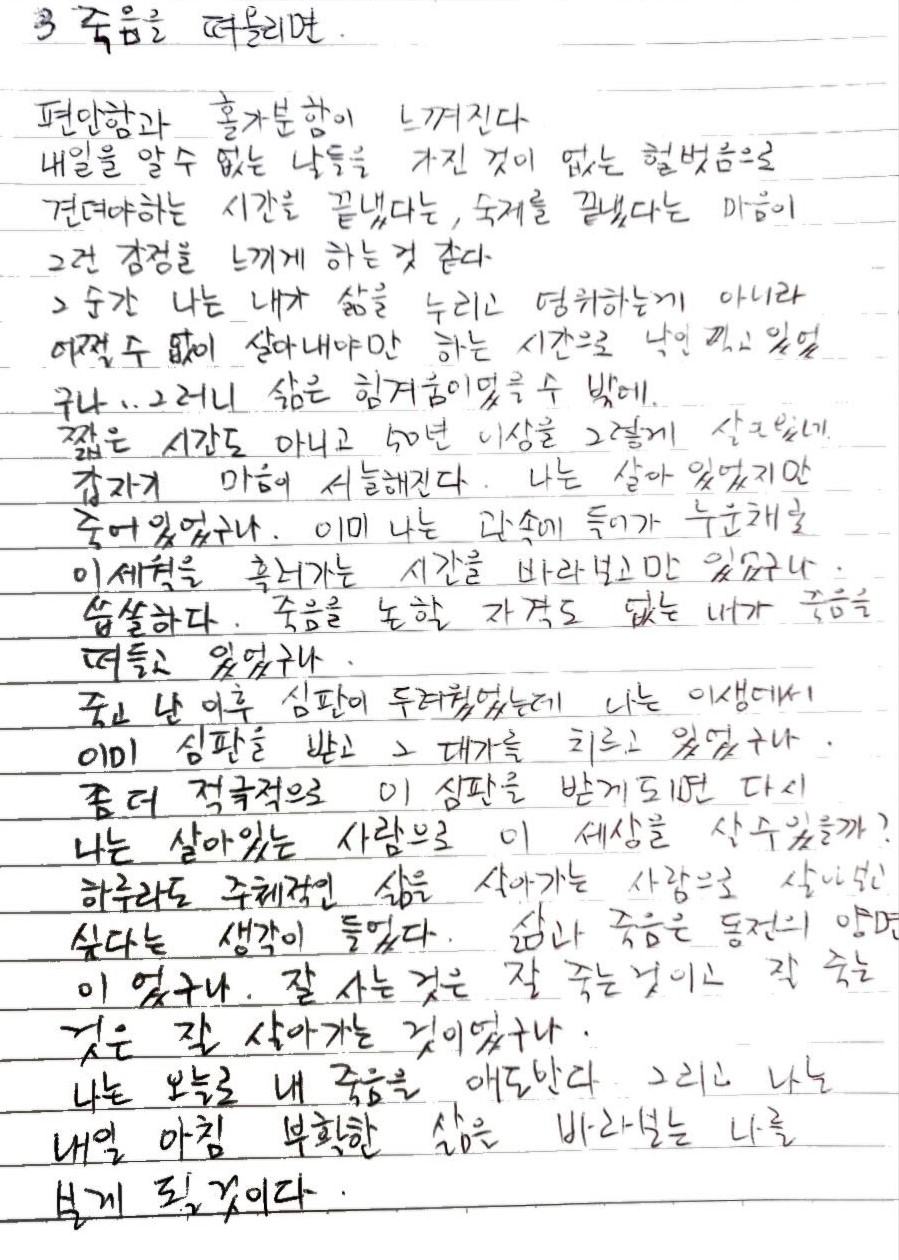 3 죽음을 떠올리면.
편안함과 홀가분함이 느껴진다
내일을 알 수 없는 날들을 가진 것이 없는 헐벗음으로
견뎌야하는 시간을 끝냈다는, 숙제를 끝냈다는 마음이
그런 감정을 느끼게 하는 것 같다.
그 순간 나는 내가 삶을 누리고 영위하는게 아니라
어쩔 수 없이 살아내야만 하는 시간으로 낙인 찍고 있었
구나.. 그러니 삶은 힘겨움이었을 수 밖에.
짧은 시간도 아니고 50년 이상을 그렇게 살고있네.
갑자기 마음이 서늘해진다. 나는 살아 있었지만
죽어있었구나. 이미 나는 관속에 들어가 누운채로
이세월을 흘러가는 시간을 바라보고만 있었구나.
씁쓸하다. 죽음을 논할 자격도 없는 내가 죽음을
떠들고 있었구나.
죽고 난 이후 심판이 두려웠었는데 나는 이생에서
이미 심판을 받고 그 대가를 치르고 있었구나.
좀더 적극적으로 이 심판을 받게되면 다시
나는 살아있는 사람으로 이 세상을 살수있을까?
하루라도 주체적인 삶을 살아가는 사람으로 살아보고
싶다는 생각이 들었다. 삶과 죽음은 동전의 양면
이었구나. 잘 사는것은 잘 죽는것이고 잘 죽는
것은 잘 살아가는 것이었구나.
나는 오늘로 내 죽음을 애도한다 그리고 나는
내일 아침 부활한 삶을 바라보는 나를
보게 될것이다.